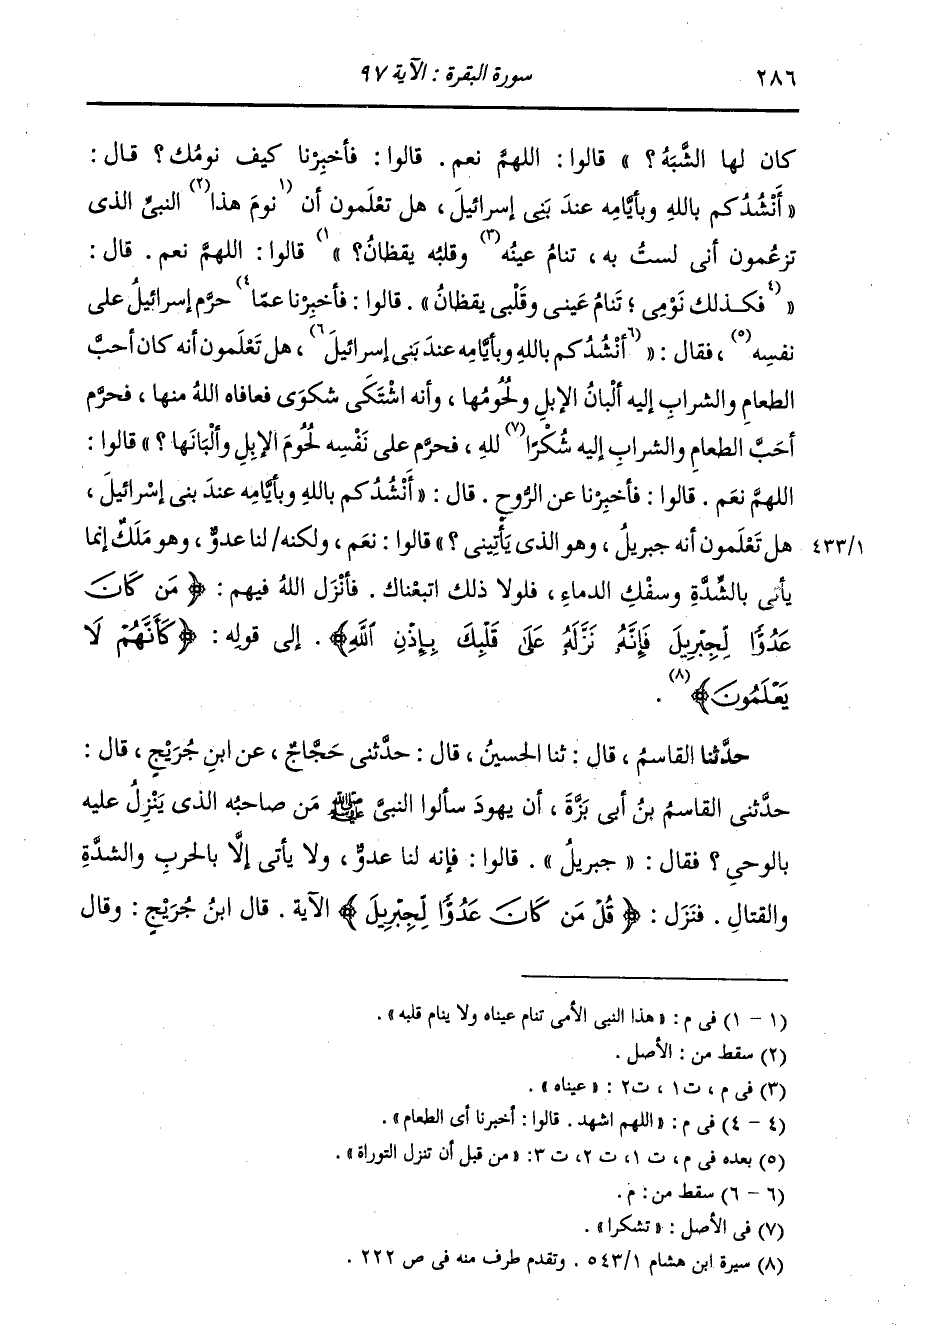 ٢٨٦ سورة البقرة : الآية ٩٧
كان لها الشَّبَهُ ؟ » قالوا : اللهمَّ نعم . قالوا : فأخبِرْنا كيف نومُك ؟ قال :
« أَنْشُدُكم باللهِ وبأيَّامِه عندَ بَنِى إسرائيلَ ، هل تعْلَمون أن (١نومَ هذا(٢) النبىِّ الذى
تزعُمون أنى لستُ به ، تنامُ عينُه(٣) وقلبُه يقظانُ ؟ »١) قالوا : اللهمَّ نعم . قال :
« (٤فكـذلك نَوْمِى ؛ تَنامُ عَينى وقَلْبِى يقظانُ » . قالوا : فأخبِرْنا عمّا٤) حرَّم إسرائيلُ على
نفسِه(٥) ، فقال : « (٦أَنْشُدُكم باللهِ وبأيَّامِه عندَ بَنِى إسرائيلَ٦) ، هل تَعْلَمون أنه كان أحبَّ
الطعامِ والشرابِ إليه ألْبانُ الإبلِ ولُحُومُها ، وأنه اشْتَكَى شكوَى فعافاه اللهُ منها ، فحرَّم
أحَبَّ الطعامِ والشرابِ إليه شُكْرًا(٧) للهِ ، فحرَّم على نَفْسِه لُحُومَ الإبلِ وألْبَانَها ؟ » قالوا :
اللهمَّ نعَم . قالوا : فأخبِرْنا عن الرُّوحِ . قال : « أَنْشُدُكم باللهِ وبأيَّامِه عندَ بنى إسْرائيلَ ،
٤٣٣/١ هل تَعْلَمون أنه جبريلُ ، وهو الذى يَأْتِينى ؟ » قالوا : نعَم ، ولكنه/ لنا عدوٌّ ، وهو مَلَكٌ إنما
يأتى بالشِّدَّةِ وسفْكِ الدماءِ ، فلولا ذلك اتبعْناك . فأنْزَل اللهُ فيهم : ﴿ مَن كَانَ
عَدُوًّا لِّجِبْرِيلَ فَإِنَّهُۥ نَزَّلَهُۥ عَلَىٰ قَلْبِكَ بِإِذْنِ ٱللَّهِ ﴾ . إلى قولِه : ﴿ كَأَنَّهُمْ لَا
يَعْلَمُونَ ﴾(٨) .
حدَّثنا القاسمُ ، قال : ثنا الحسينُ ، قال : حدَّثنى حَجَّاجٌ ، عن ابنِ جُرَيْجٍ ، قال :
حدَّثنى القاسمُ بنُ أبى بَزَّةَ ، أن يهودَ سألوا النبىَّ ﷺ مَن صاحبُه الذى يَنْزِلُ عليه
بالوحيِ ؟ فقال : « جبريلُ » . قالوا : فإنه لنا عدوٌّ ، ولا يأتى إلَّا بالحربِ والشدَّةِ
والقتالِ . فنَزَل : ﴿ قُلْ مَن كَانَ عَدُوًّا لِّجِبْرِيلَ ﴾ الآية . قال ابنُ جُرَيْجٍ : وقال
(١ - ١) فى م : « هذا النبى الأمى تنام عيناه ولا ينام قلبه » .
(٢) سقط من : الأصل .
(٣) فى م ، ت١ ، ت٢ : « عيناه » .
(٤ - ٤) فى م : « اللهم اشهد . قالوا : أخبرنا أى الطعام » .
(٥) بعده فى م ، ت ١، ت ٢، ت ٣: « من قبل أن تنزل التوراة » .
(٦ - ٦) سقط من : م .
(٧) فى الأصل : « تشكرا » .
(٨) سيرة ابن هشام ٥٤٣/١ . وتقدم طرف منه فى ص ٢٢٢ .